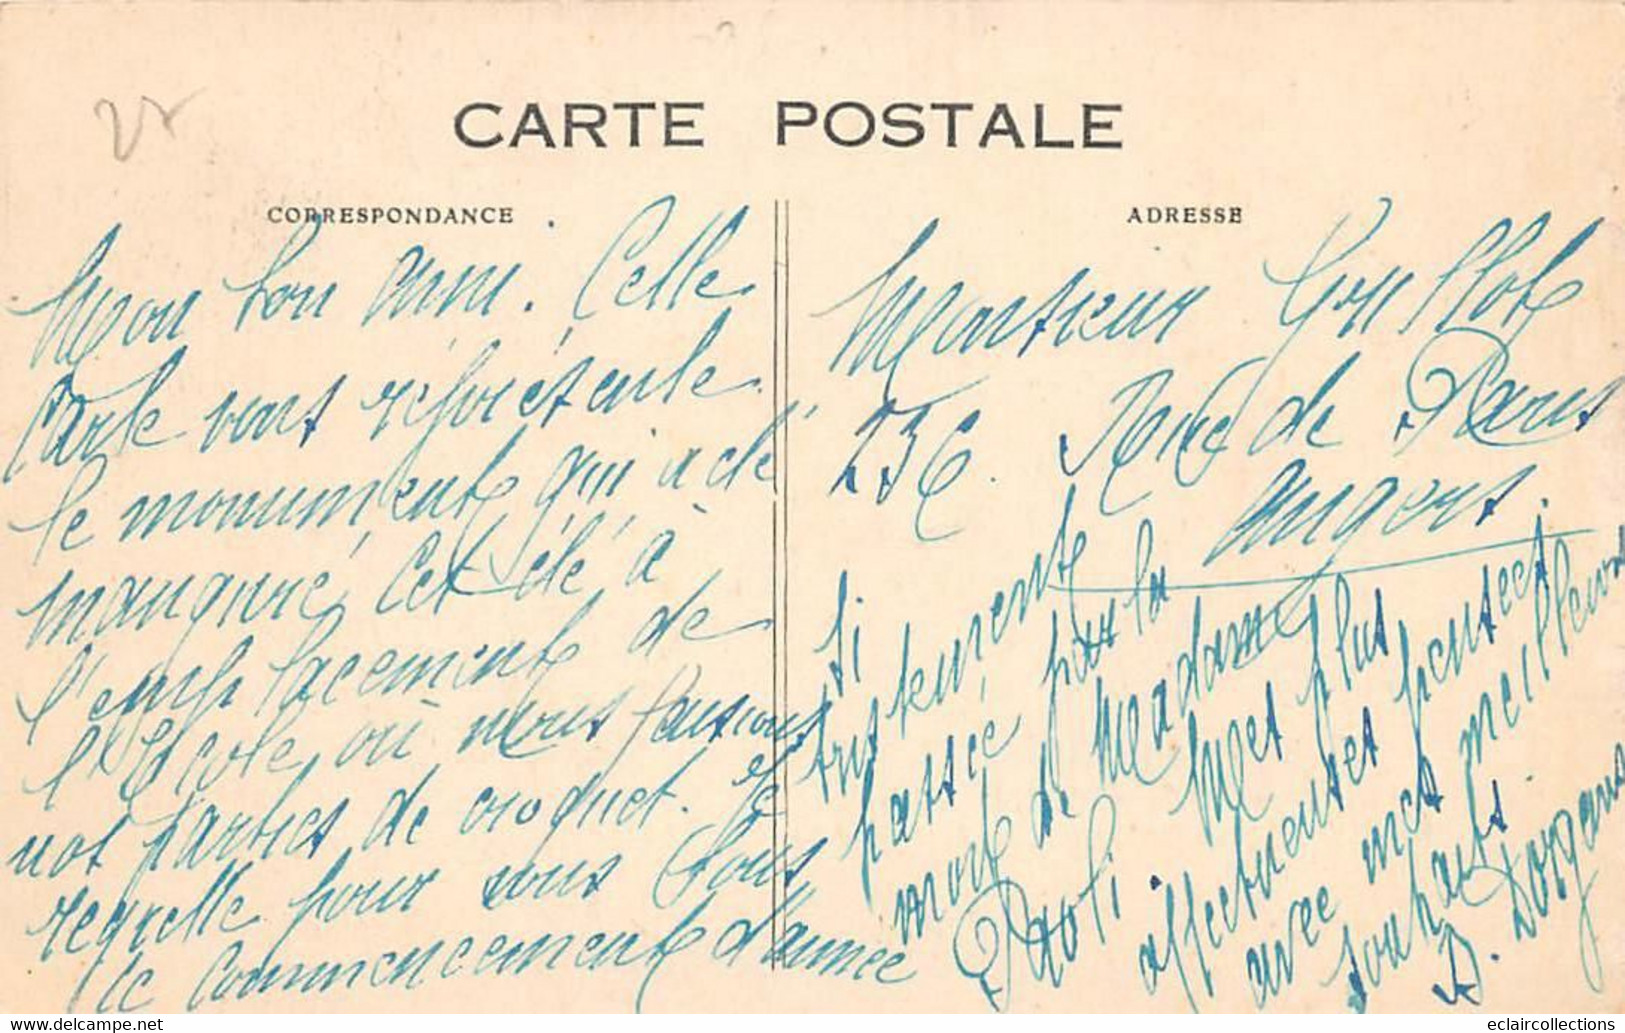 CARTE POSTALE
CORRESPONDANCE
ADRESSE
Mon bon ami. Cette
Carte vous représente
le monument qui a été
inauguré cet été à
l'emplacement de
l'Ecole, où nous faisions
nos parties de croquet. Je
regrette pour vous tous
le commencement d'année
Monsieur Guillot
23 Rue de Paris
Angers
si
tristement
passée par la
mort de Madame
Paoli. Met plus
affectueuses pensées
avec mes meilleurs
souhaits
D. Dorgans
eclaircollections